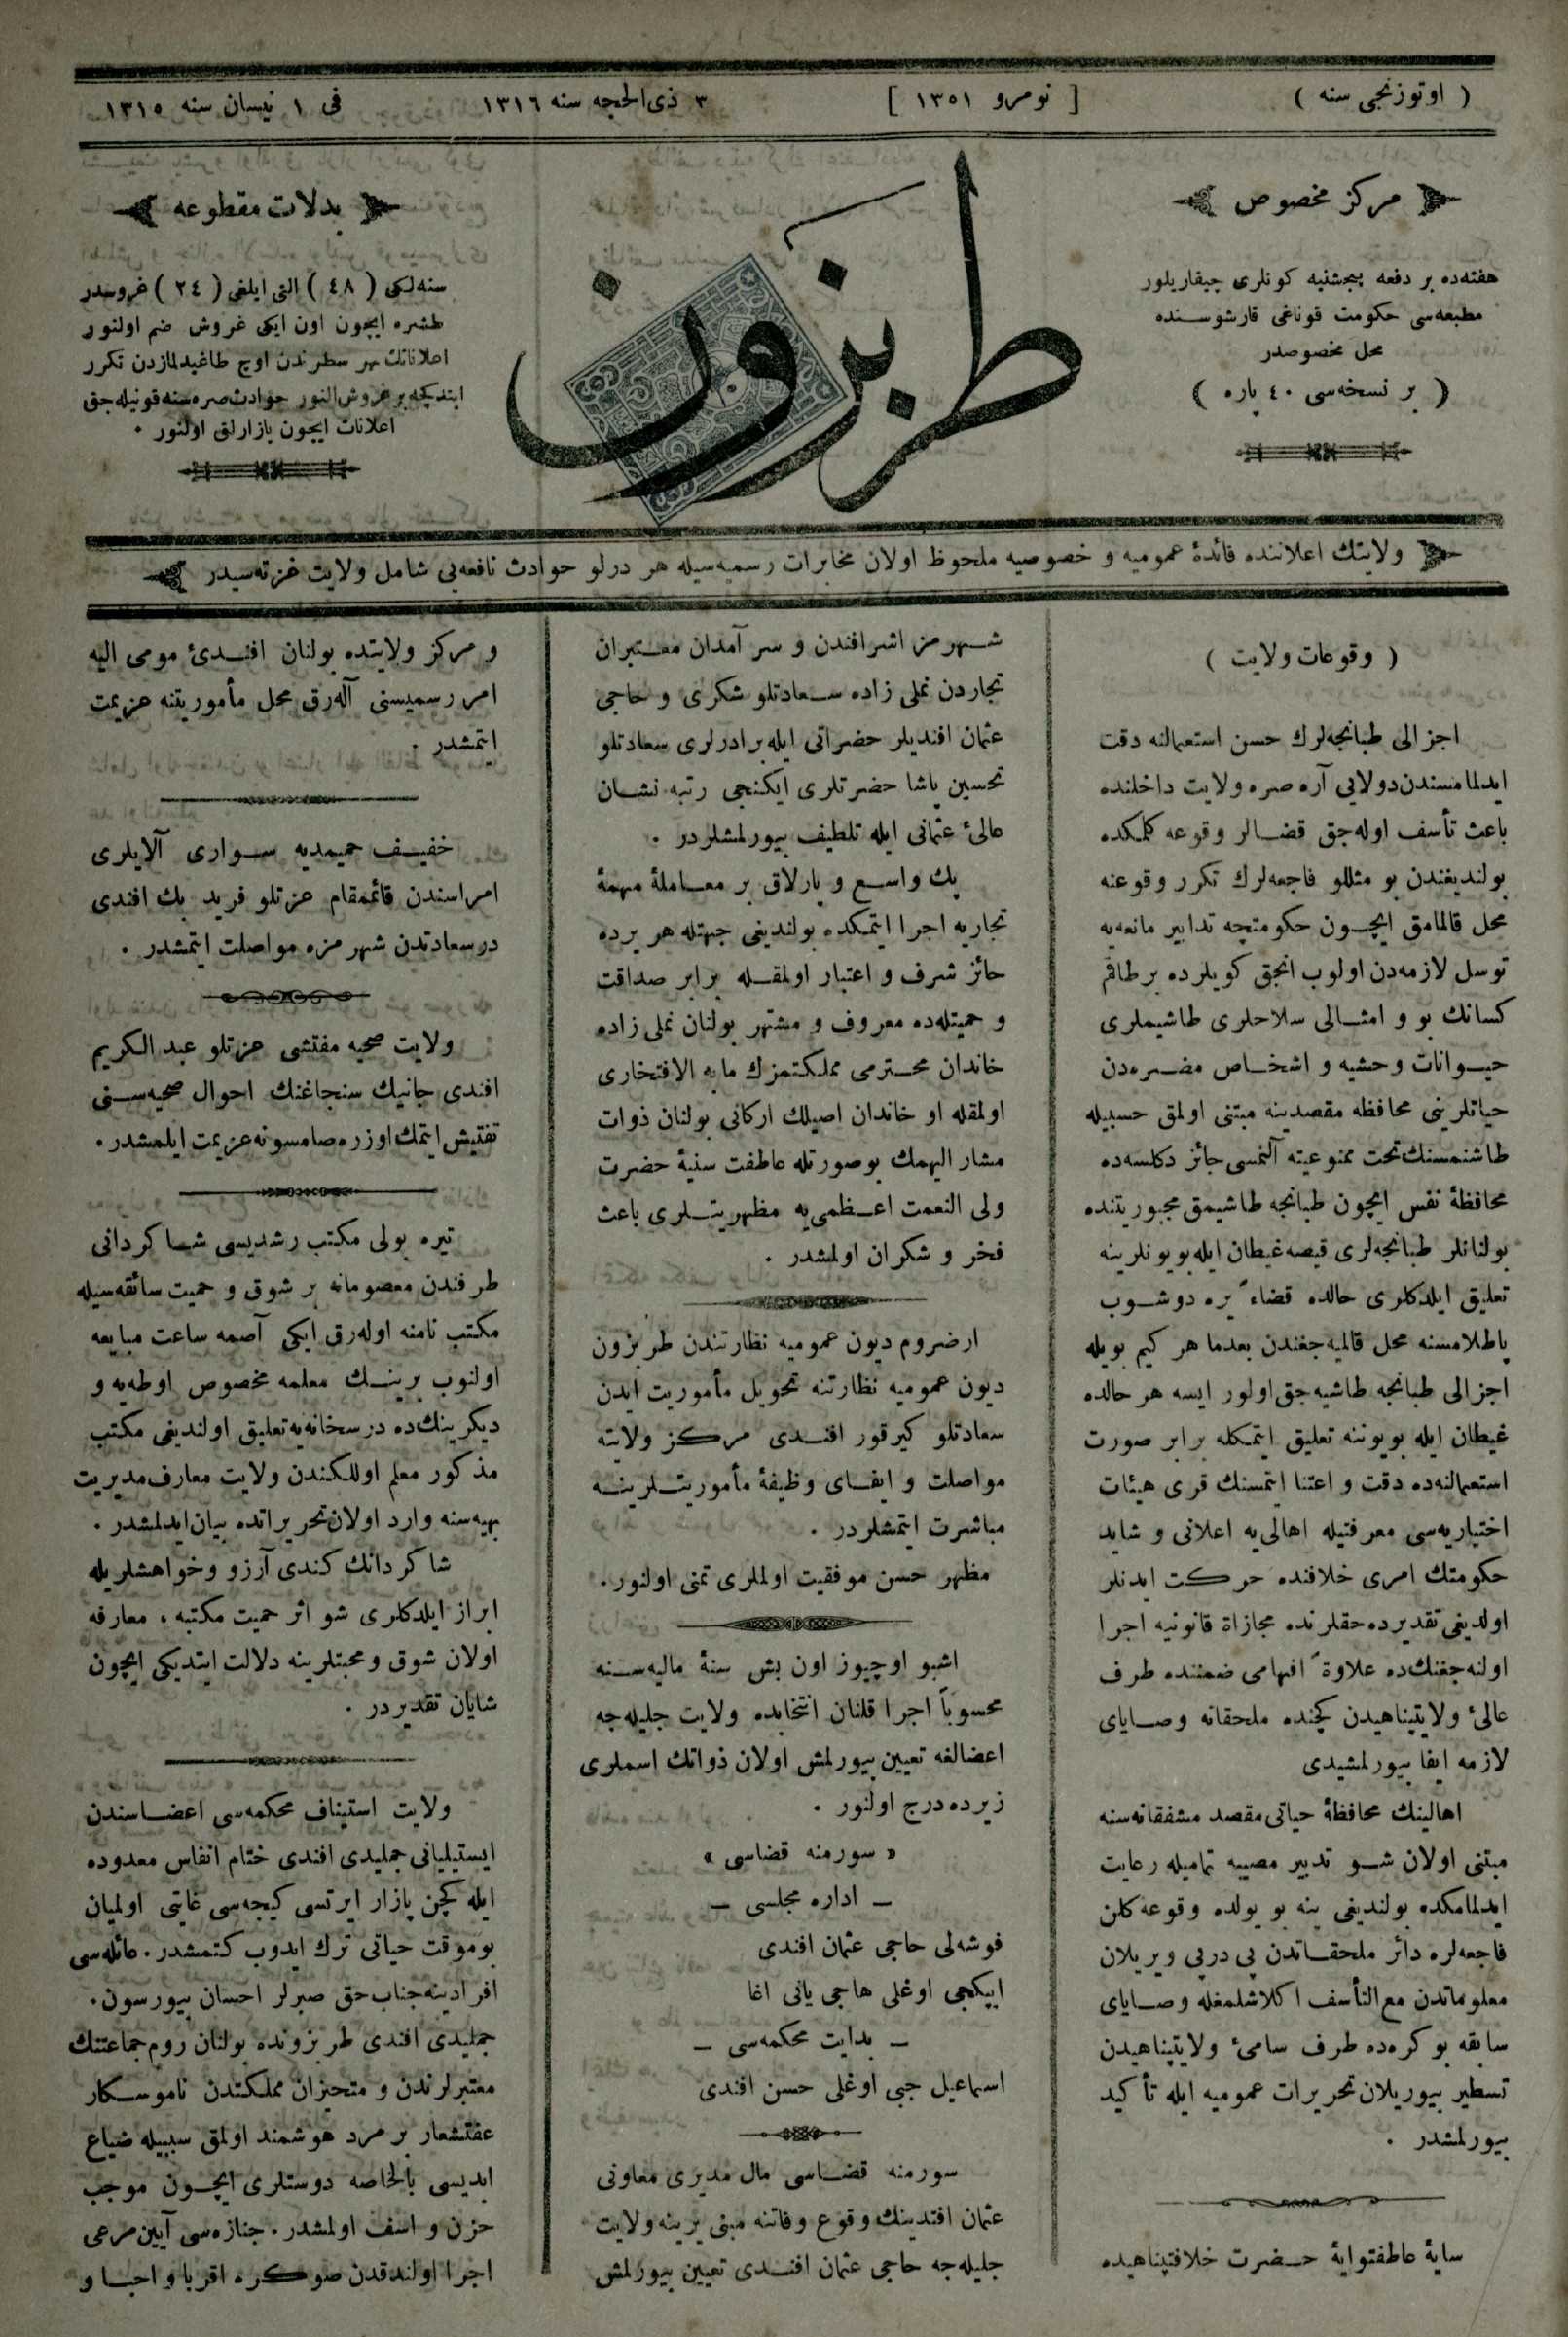 ( اوتوزنجی سنه )
[ نومرو ١٣٥١ ]
٣ ذی‌الحجه سنه ١٣١٦
فی ١ نیسان سنه ١٣١٥
مرکز مخصوص
هفته‌ده بر دفعه پنجشنبه کونلری چیقاریلور
مطبعه‌سی حکومت قوناغی قارشوسنده
محل مخصوصدر
( بر نسخه‌سی ٤٠ پاره )
طربزون
بدلات مقطوعه
سنه‌لکی ( ٤٨ ) التی ایلغی ( ٢٤ ) غروشدر
طشره ایچون اون ایکی غروش ضم اولنور
اعلاناتك هر سطرندن اوچ طاغیدلمازدن تکرر
ایتدیکجه بر غروش النور حوادث صره‌سنه قونیله‌جق
اعلانات ایچون بازارلق اولنور ٠
ولایتك اعلاننده فائدهٔ عمومیه و خصوصیه ملحوظ اولان مخابرات رسمیه‌سیله هر درلو حوادث نافعه‌یی شامل ولایت غزته‌سیدر
( وقوعات ولایت )
اجزالی طبانجه‌لرك حسن استعمالنه دقت
ایدلمامسندن دولایی آره صره ولایت داخلنده
باعث تأسف اوله‌جق قضالر وقوعه کلمکده
بولندیغندن بو مثللو فاجعه‌لرك تکرر وقوعنه
محل قالمامق ایچون حکومتچه تدابیر مانعه‌یه
توسل لازمه‌دن اولوب انجق کویلرده بر طاقم
کسانك بو و امثالی سلاحلری طاشیملری
حیوانات وحشیه و اشخاص مضره‌دن
حیاتلرینی محافظه مقصدینه مبتنی اولمق حسبیله
طاشنمسنك تحت ممنوعیته آلنمسی جائز دکلسه‌ده
محافظهٔ نفس ایچون طبانجه طاشیمق مجبوریتنده
بولنانلر طبانجه‌لری قیصه غیطان ایله بویونلرینه
تعلیق ایلدکلری حالده قضاءً یره دوشوب
پاطلامسنه محل قالمیه‌جغندن بعدما هر کیم بویله
اجزالی طبانجه طاشیه‌جق اولور ایسه هر حالده
غیطان ایله بویوننه تعلیق ایتمکله برابر صورت
استعمالنه‌ده دقت و اعتنا ایتمسنك قری هیئات
اختیاریه‌سی معرفتیله اهالی‌یه اعلانی و شاید
حکومتك امری خلافنده حرکت ایدنلر
اولدیغی تقدیرده حقلرنده مجازاة قانونیه اجرا
اولنه‌جغنك‌ده علاوةً افهامی ضمننده طرف
عالیٔ ولایتپناهیدن کچنده ملحقاته وصایای
لازمه ایفا بیورلمشیدی
اهالینك محافظهٔ حیاتی مقصد مشفقانه‌سنه
مبتنی اولان شو تدبیر مصیبه تمامیله رعایت
ایدلمامکده بولندیغی ینه بو یولده وقوعه کلن
فاجعه‌لره دائر ملحقاتدن پی درپی ویریلان
معلوماتدن مع‌التأسف اکلاشلمغله وصایای
سابقه بو کره‌ده طرف سامیٔ ولایتپناهیدن
تسطیر بیوریلان تحریرات عمومیه ایله تأکید
بیورلمشدر ٠
سایهٔ عاطفتوایهٔ حضرت خلافتپناهیده
شهرمز اشرافندن و سر آمدان معتبران
تجاردن نملی زاده سعادتلو شکری و حاجی
عثمان افندیلر حضراتی ایله برادرلری سعادتلو
تحسین پاشا حضرتلری ایکنجی رتبه نشان
عالیٔ عثمانی ایله تلطیف بیورلمشلردر ٠
پك واسع و پارلاق بر معاملهٔ مهمهٔ
تجاریه اجرا ایتمکده بولندیغی جهتله هر یرده
حائز شرف و اعتبار اولمقله برابر صداقت
و حمیتله‌ده معروف و مشتهر بولنان نملی زاده
خاندان محترمی مملکتمزك مابه الافتخاری
اولمقله او خاندان اصیلك ارکانی بولنان ذوات
مشار الیهمك بوصورتله عاطفت سنیهٔ حضرت
ولی النعمت اعظمی‌یه مظهریتلری باعث
فخر و شکران اولمشدر ٠
ارضروم دیون عمومیه نظارتندن طربزون
دیون عمومیه نظارتنه تحویل مأموریت ایدن
سعادتلو کیرقور افندی مرکز ولایته
مواصلت و ایفای وظیفهٔ مأموریتلرینه
مباشرت ایتمشلردر ٠
مظهر حسن موفقیت اولملری تمنی اولنور٠
اشبو اوچیوز اون بش سنهٔ مالیه‌سنه
محسوباً اجرا قلنان انتخابده ولایت جلیله‌جه
اعضالغه تعیین بیورلمش اولان ذواتك اسملری
زیرده درج اولنور ٠
« سورمنه قضاسی »
ـ اداره مجلسی ـ
فوشه‌لی حاجی عثمان افندی
ایپکجی اوغلی هاجی یانی اغا
ـ بدایت محکمه‌سی ـ
اسماعیل جبی اوغلی حسن افندی
سورمنه قضاسی مال مدیری معاونی
عثمان افندینك وقوع وفاتنه مبنی یرینه ولایت
جلیله‌جه حاجی عثمان افندی تعیین بیورلمش
و مرکز ولایتده بولنان افندیٔ مومی الیه
امر رسمیسنی آله‌رق محل مأموریتنه عزیمت
ایتمشدر ٠
خفیف حمیدیه سواری آلایلری
امراسندن قائممقام عزتلو فرید بك افندی
درسعادتدن شهرمزه مواصلت ایتمشدر ٠
ولایت صحیه مفتشی عزتلو عبد الکریم
افندی جانیك سنجاغنك احوال صحیه‌سنی
تفتیش ایتمك اوزره صامسونه عزیمت ایلمشدر٠
تیره بولی مکتب رشدیسی شاکردانی
طرفندن معصومانه بر شوق و حمیت سائقه‌سیله
مکتب نامنه اوله‌رق ایکی آصمه ساعت مبایعه
اولنوب برینك معلمه مخصوص اوطه‌یه و
دیکرینك‌ده درسخانه‌یه تعلیق اولندیغی مکتب
مذکور معلم اوللکندن ولایت معارف مدیریت
بهیه‌سنه وارد اولان تحریراتده بیان ایدلمشدر ٠
شاکردانك کندی آرزو وخواهشلریله
ابراز ایلدکلری شو اثر حمیت مکتبه ، معارفه
اولان شوق و محبتلرینه دلالت ایتدیکی ایچون
شایان تقدیردر ٠
ولایت استیناف محکمه‌سی اعضاسندن
ایستیلیانی جملیدی افندی ختام انفاس معدوده
ایله کچن پازار ایرتسی کیجه‌سی غایتی اولمیان
بوموقت حیاتی ترك ایدوب کتمشدر٠ عائله‌سی
افرادینه جناب حق صبرلر احسان بیورسون٠
جملیدی افندی طربزونده بولنان روم جماعتنك
معتبرلرندن و متحیزان مملکتدن ناموسکار
عفتشعار بر مرد هوشمند اولمق سببیله ضیاع
ابدیسی بالخاصه دوستلری ایچون موجب
حزن و اسف اولمشدر٠ جنازه‌سی آیین مرعی
اجرا اولندقدن صوکره اقربا و احبا و